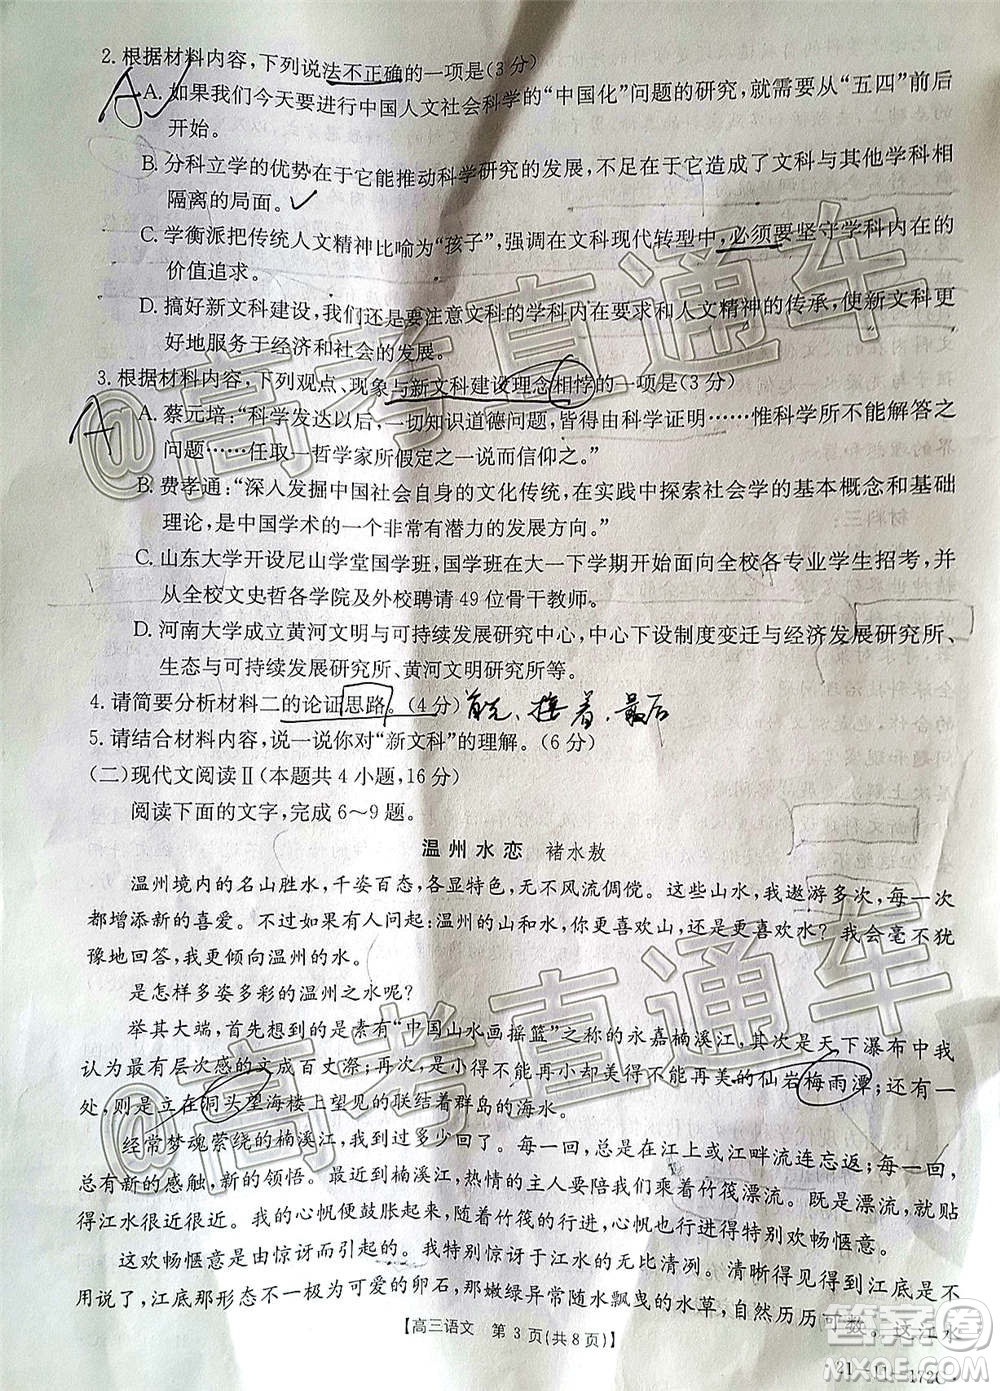 2. 根据材料内容,下列说法不正确的一项是(3分)
A. 如果我们今天要进行中国人文社会科学的“中国化”问题的研究,就需要从“五四”前后
开始。
B. 分科立学的优势在于它能推动科学研究的发展,不足在于它造成了文科与其他学科相
隔离的局面。
C. 学衡派把传统人文精神比喻为“孩子”,强调在文科现代转型中,必须要坚守学科内在的
价值追求。
D. 搞好新文科建设,我们还是要注意文科的学科内在要求和人文精神的传承,使新文科更
好地服务于经济和社会的发展。
3. 根据材料内容,下列观点、现象与新文科建设理念相悖的一项是(3分)
A
A
A. 蔡元培:“科学发达以后,一切知识道德问题,皆得由科学证明……惟科学所不能解答之
问题……任取一哲学家所假定之一说而信仰之。”
B. 费孝通:“深入发掘中国社会自身的文化传统,在实践中探索社会学的基本概念和基础
理论,是中国学术的一个非常有潜力的发展方向。”
C. 山东大学开设尼山学堂国学班,国学班在大一下学期开始面向全校各专业学生招考,并
从全校文史哲各学院及外校聘请49位骨干教师。
D. 河南大学成立黄河文明与可持续发展研究中心,中心下设制度变迁与经济发展研究所、
生态与可持续发展研究所、黄河文明研究所等。
4. 请简要分析材料二的论证思路。(4分) 首先、接着、最后
5. 请结合材料内容,说一说你对“新文科”的理解。(6分)
(二)现代文阅读Ⅱ(本题共4小题,16分)
阅读下面的文字,完成6~9题。
温州水恋 褚水敖
温州境内的名山胜水,千姿百态,各显特色,无不风流倜傥。这些山水,我遨游多次,每一次
都增添新的喜爱。不过如果有人问起:温州的山和水,你是更喜欢山,还是更喜欢水?我会毫不犹
豫地回答,我更倾向温州的水。
是怎样多姿多彩的温州之水呢?
举其大端,首先想到的是素有“中国山水画摇篮”之称的永嘉楠溪江,其次是天下瀑布中我
认为最有层次感的文成百丈漈;再次,是小得不能再小却美得不能再美的仙岩梅雨潭;还有一
处,则是立在洞头望海楼上望见的联结着群岛的海水。
经常梦魂萦绕的楠溪江,我至多少回了。每一回,总在江上或江畔流连忘返;每一回,
总有新的感触,新的领悟。最近到楠溪江,热情的主人要陪我们乘着竹筏漂流。既是漂流,就离
得江水很近很近。我的心帆便鼓胀起来,随着竹筏的行进,心帆也行进得欢畅惬意。
这欢畅惬意是由惊讶而引起的。我特别惊讶于江水的无比清冽。清晰得见江底是不
用说了,江底那形态不一极为可爱的卵石,那嫩绿异常随水飘曳的水草,自然历历可数。这江水
【高三语文 第3页(共8页)】
@高考直通车
@高考直通车